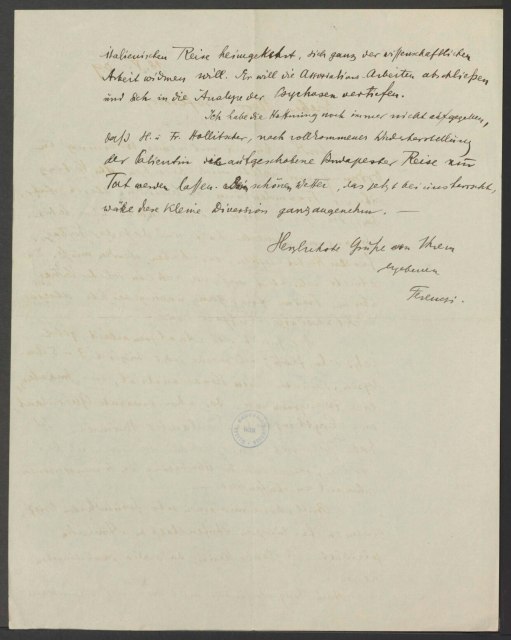 italienischen Reise heimgekehrt, sich ganz der wissenschaftlichen
Arbeit widmen will. Er will die Assoziations-Arbeiten abschließen
und sich in die Analyse der Psychosen vertiefen.
Ich habe die Hoffnung noch immer nicht aufgegeben,
daß H. u. Fr. Hollitscher, nach vollkommener Wiederherstellung
der Patientin die aufgeschobene Budapester Reise zur
Tat werden lassen. Bei schönem Wetter, das jetzt bei uns herrscht,
wäre diese kleine Diversion ganz angenehm. —
Herzlichste Grüße von Ihrem
ergebenen
Ferenczi.